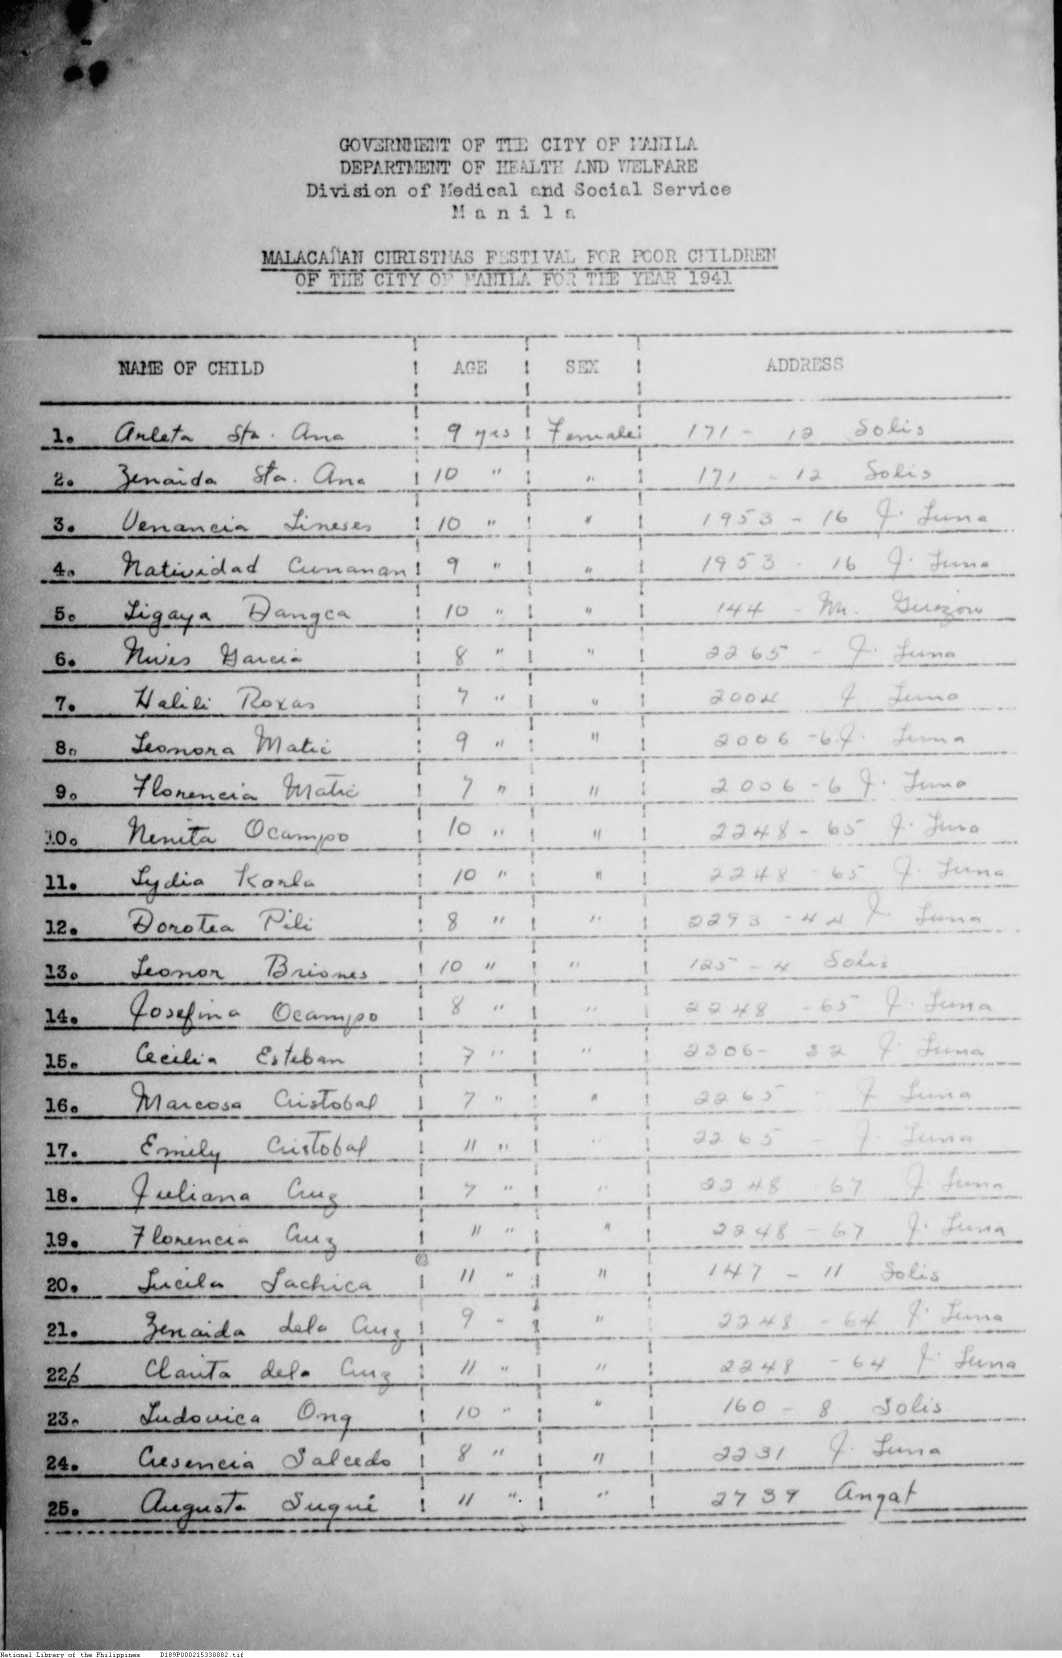 GOVERNMENT OF THE CITY OF MANILA
DEPARTMENT OF HEALTH AND WELFARE
Division of Medical and Social Service
M a n i l a
MALACAÑAN CHRISTMAS FESTIVAL FOR POOR CHILDREN
OF THE CITY OF MANILA FOR THE YEAR 1941
NAME OF CHILD AGE SEX ADDRESS
1. Arleta Sta. Ana 9 yrs Female 171 - 12 Solis
2. Zenaida Sta. Ana 10 " " 171 - 12 Solis
3. Venancia Lineses 10 " " 1953 - 16 J. Luna
4. Natividad Cunanan 9 " " 1953 - 16 J. Luna
5. Ligaya Dangca 10 " " 144 - M.
6. Nives Garcia 8 " " 2265 - J. Luna
7. Halili Roxas 7 " " 2004 J Luna
8. Leonora Matic 9 " " 2006 -6 J. Luna
9. Florencia Matic 7 " " 2006 - 6 J. Luna
10. Nenita Ocampo 10 " " 2248 - 65 J. Luna
11. Lydia Karla 10 " " 2248 - 65 J. Luna
12. Dorotea Pili 8 " " 2293 - 44 J Luna
13. Leonor Briones 10 " " 125 - 4 Solis
14. Josefina Ocampo 8 " " 2248 - 65 J. Luna
15. Cecilia Esteban 7 " " 2306 - 32 J. Luna
16. Marcosa Cristobal 7 " " 2265 - J Luna
17. Emily Cristobal 11 " " 2265 - J. Luna
18. Juliana Cruz 7 " " 2248 67 J. Luna
19. Florencia Cruz 11 " " 2248 - 67 J. Luna
20. Lucila Lachica 11 " " 147 - 11 Solis
21. Zenaida dela Cruz 9 " " 2248 - 64 J. Luna
22. Clarita dela Cruz 11 " " 2248 - 64 J. Luna
23. Ludovica Ong 10 " " 160 - 8 Solis
24. Cresencia Salcedo 8 " " 2231 J. Luna
25. Augusta Suqui 11 " " 2739 Angat
National Library of the Philippines D189P000215330882.tif